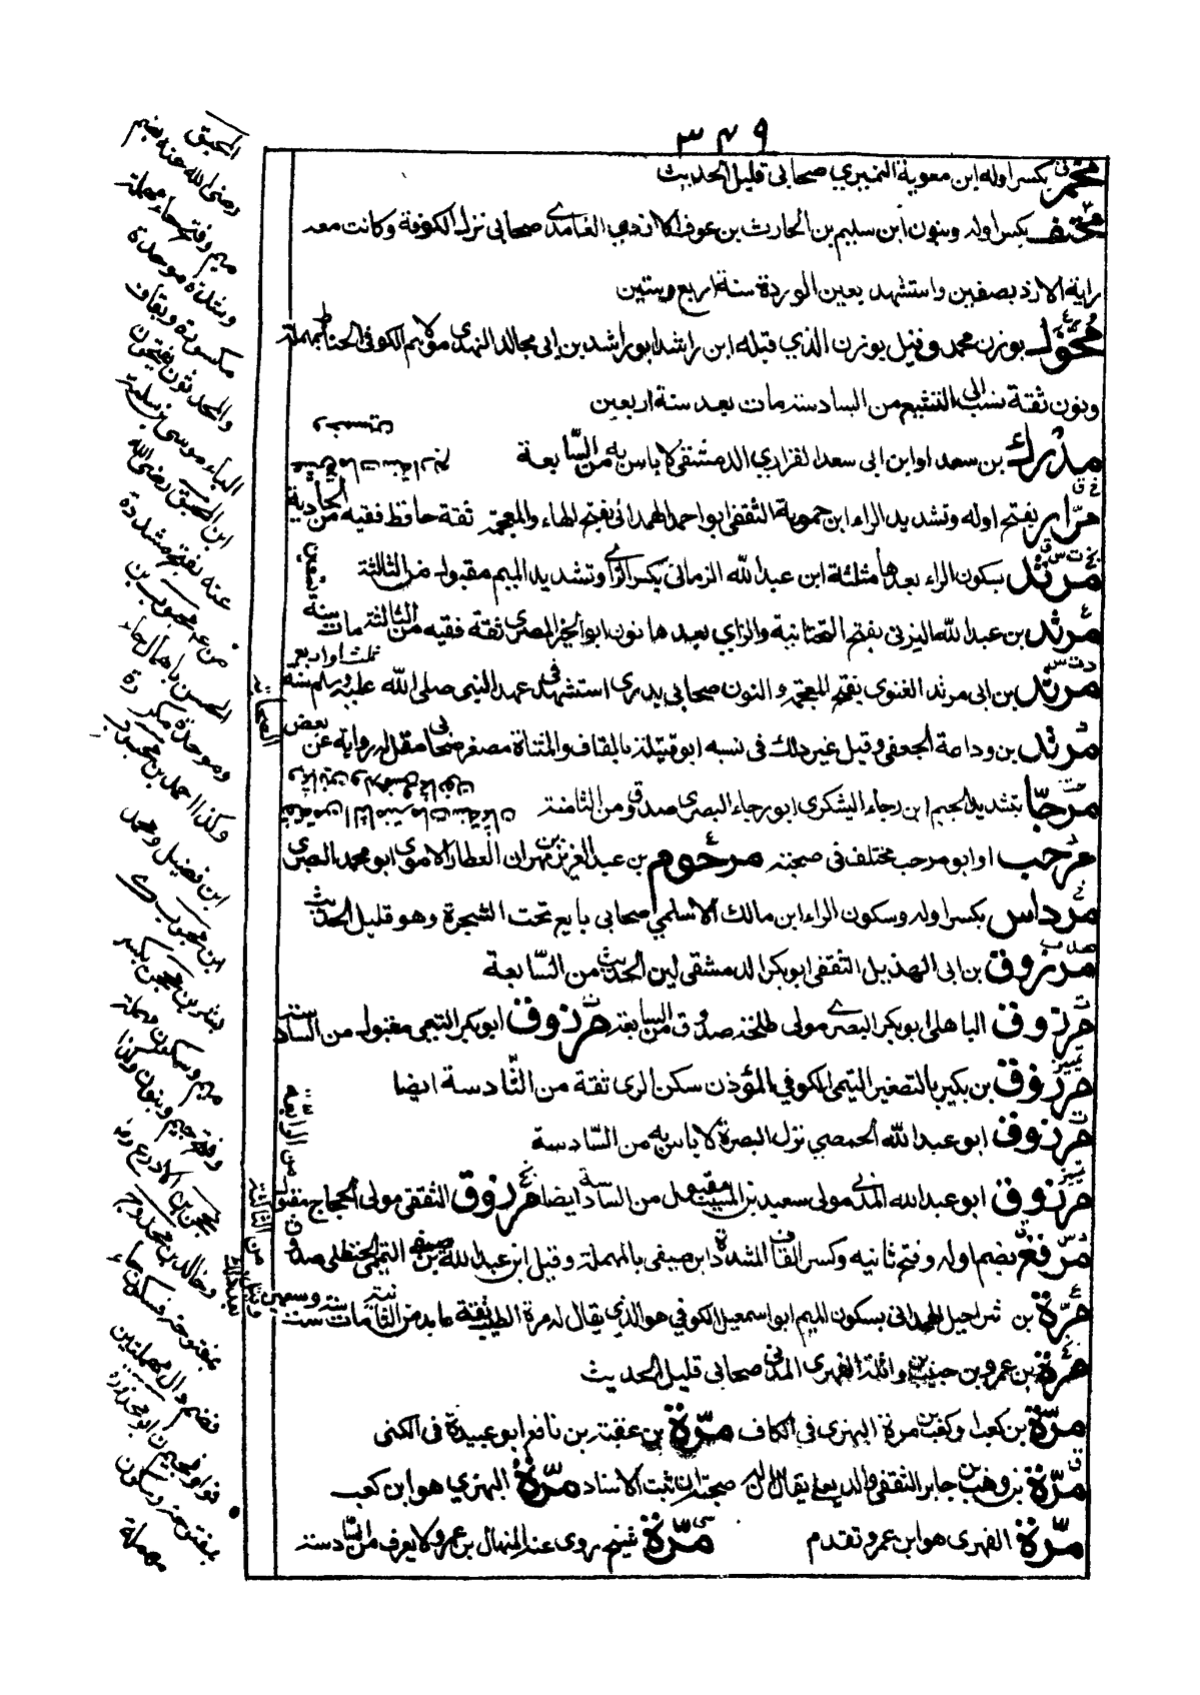 ٣٤٩
مخمر بكسر اوله ابن معوية النميري صحابي قليل الحديث
مخنف بكسر اوله وبنون ابن سليم بن الحارث بن عوف الازدي الغامدي صحابي نزل الكوفة وكانت معه
راية الازد بصفين واستشهد بعين الوردة سنة اربع وستين
مخول بوزن محمد وقيل بوزن الذي قبله ابن راشد ابو راشد بن ابي مجالد النهدي مولاهم الكوفي الحناط بمهملة
ونون ثقة نسب الى التشيع من السادسة مات بعد سنة اربعين
مدرك بن سعد او ابن ابي سعد الفزاري الدمشقي لا باس به من السابعة
مرار بفتح اوله وتشديد الراء ابن حموية الثقفي ابو احمد الهمداني بفتح الهاء والمعجمة ثقة حافظ فقيه من الحادية
مرثد بسكون الراء بعدها مثلثة ابن عبد الله الزماني بكسر الزاي وتشديد الميم مقبول من الثالثة
مرثد بن عبد الله اليزني بفتح التحتانية والزاي بعدها نون ابو الخير المصري ثقة فقيه من الثالثة مات سنة تسعين
مرثد بن ابي مرثد الغنوي بفتح المعجمة والنون صحابي بدري استشهد في عهد النبي صلى الله عليه وسلم سنة
ثلث او اربع
مرثد بن وداعة الجعفي وقيل غير ذلك في نسبه ابو قتيلة بالقاف والمثناة مصغر صحابي مقل له رواية عن بعض
الصحابة
مرجا بتشديد الجيم ابن رجاء اليشكري ابو رجاء البصري صدوق من الثامنة
مرحب او ابو مرحب مختلف في صحبته مرحوم بن عبد العزيز بن مهران العطار الاموي ابو محمد البصري
مرداس بكسر اوله وسكون الراء ابن مالك الاسلمي صحابي بايع تحت الشجرة وهو قليل الحديث
مرزوق بن ابي الهذيل الثقفي ابو بكر الدمشقي لين الحديث من السابعة
مرزوق الباهلي ابو بكر البصري مولى طلحة صدوق من السابعة مرزوق ابو بكر التيمي مقبول من السادسة
مرزوق بن بكير بالتصغير التيمي الكوفي المؤذن سكن الري ثقة من السادسة ايضا
مرزوق ابو عبد الله الحمصي نزل البصرة لا باس به من السادسة
مرزوق ابو عبد الله المدني مولى سعيد بن المسيب مقبول من السادسة ايضا مرزوق الثقفي مولى الحجاج مقبول من الرابعة
مرقع بضم اوله وفتح ثانيه وكسر القاف المشددة ابن صيفي بالمهملة وقيل ابن عبد الله بن صيفي التميمي الحنظلي صدوق من الثالثة
مرة بن شراحيل الهمداني بسكون الميم ابو اسمعيل الكوفي هو الذي يقال له مرة الطيب ثقة عابد من الثانية مات سنة ست وسبعين وقيل بعد ذلك
مرة بن عمرو بن حبيب بن واثلة الفهري المدني صحابي قليل الحديث
مرة بن كعب او كعب بن مرة البهزي في الكاف مرة بن عقبة بن نافع ابو عبيدة في الكنى
مرة بن وهب بن جابر الثقفي والد يعلى يقال له صحبة ان ثبت الاسناد مرة البهزي هو ابن كعب
مرة الفهري هو ابن عمرو تقدم مرة شيخ روى عنه المنهال بن عمرو لا يعرف من السادسة
المحبق
رضي الله عنه بضم
ميم وفتح حاء مهملة
وشدة موحدة
مكسورة وبقاف
والمحدثون يفتحون
الباء موسى بن سلمة
ابن المحبق رضي الله
عنه بفتح مشددة
محبوب بن
الحسن باهمال حاء
وموحدة مكررة
وكذا احمد بن محبوب
ابن فضيل ومحمد
ابن محبوب
بشر بن محجن بكسر
ميم وسكون مهملة
وفتح جيم وبنون وكذا
محجن بن الادرع
وخالد بن محدوج
بمفتوحة فسكون حاء
فضم دال مهملتين
فواو فجيم ابو محذورة
بمفتوحة وسكون
مهملة